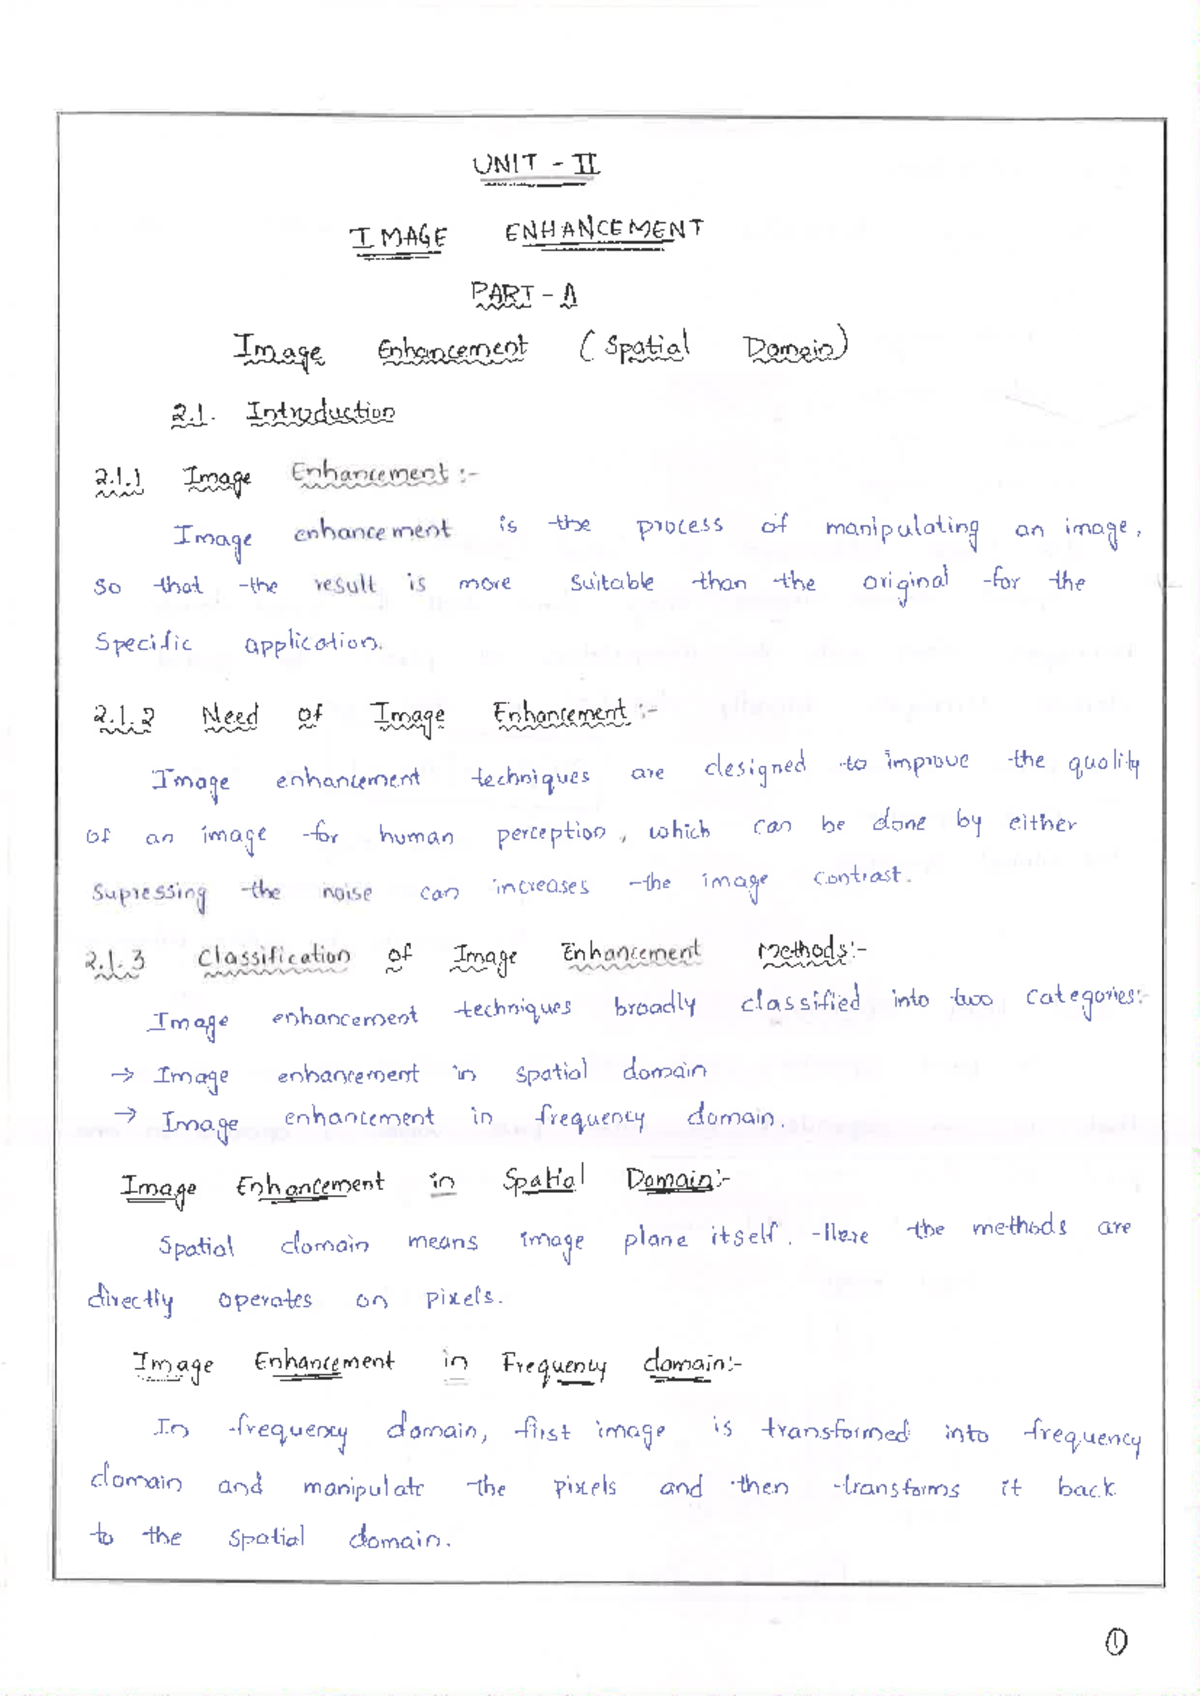 UNIT - II
IMAGE ENHANCEMENT
PART - A
Image Enhancement (Spatial Domain)
2.1. Introduction
2.1.1 Image Enhancement :-
Image enhancement is the process of manipulating an image,
so that the result is more suitable than the original for the
specific application.
2.1.2 Need of Image Enhancement :-
Image enhancement techniques are designed to improve the quality
of an image for human perception, which can be done by either
supressing the noise can increases the image contrast.
2.1.3 Classification of Image Enhancement Methods:-
Image enhancement techniques broadly classified into two categories:-
→ Image enhancement in spatial domain
→ Image enhancement in frequency domain.
Image Enhancement in Spatial Domain:-
Spatial domain means image plane itself. Here the methods are
directly operates on pixels.
Image Enhancement in Frequency domain:-
In frequency domain, first image is transformed into frequency
domain and manipulate the pixels and then transforms it back
to the spatial domain.
1